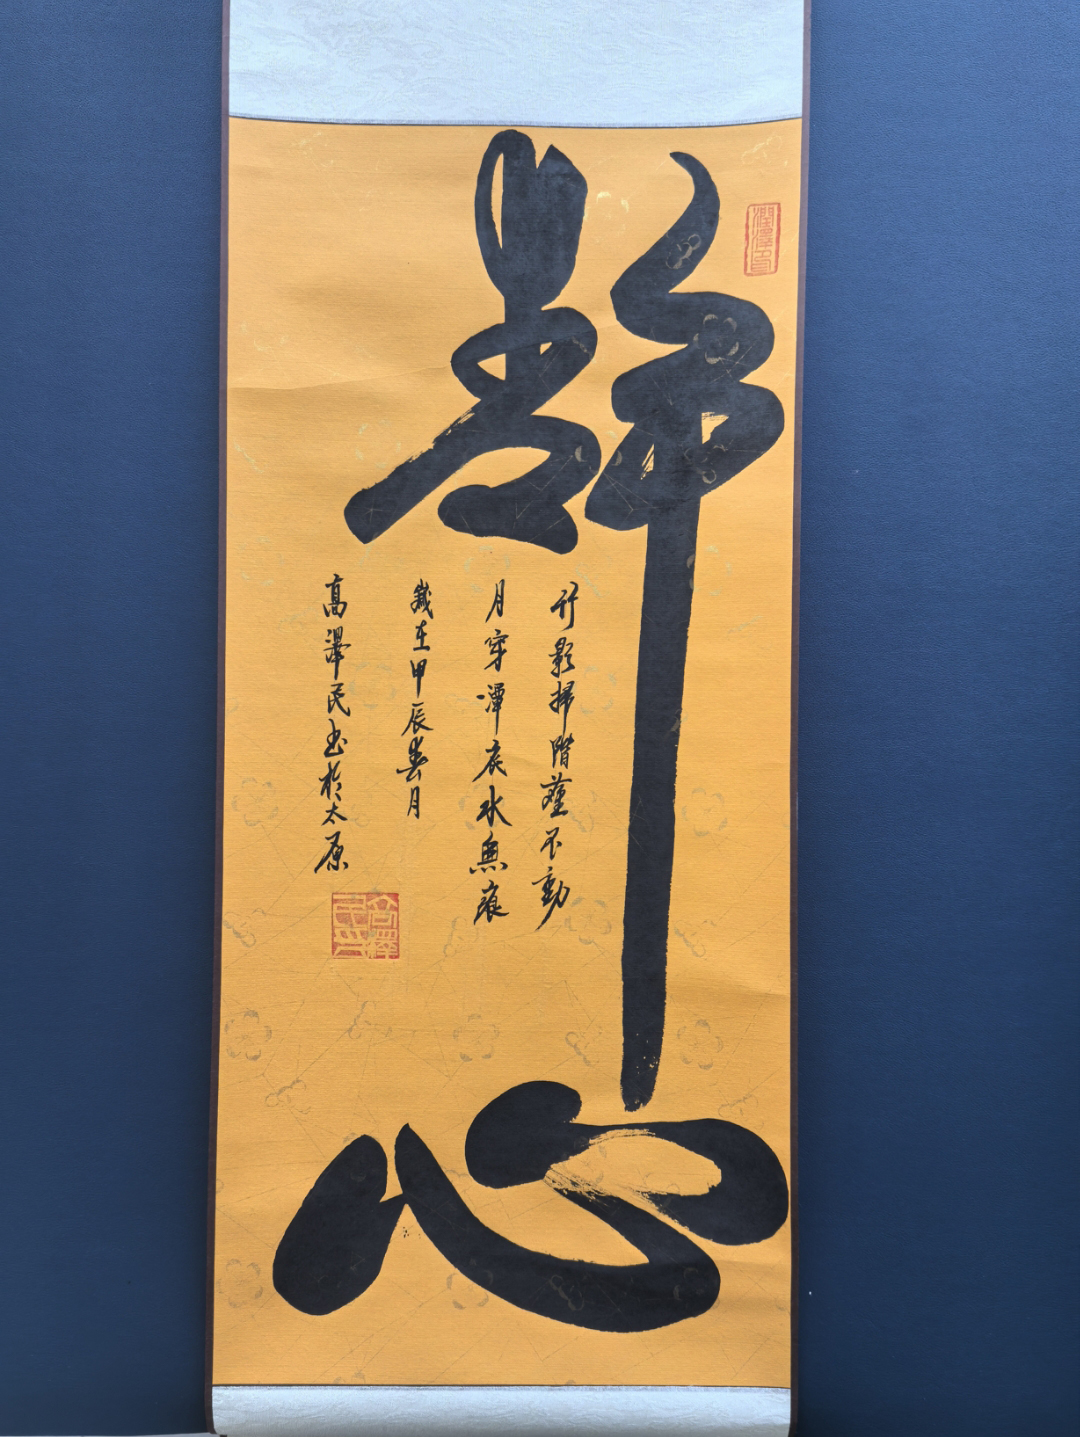 靜心
竹影掃階塵不動
月穿潭底水無痕
歲在甲辰春月
高澤民書於太原
高澤民印